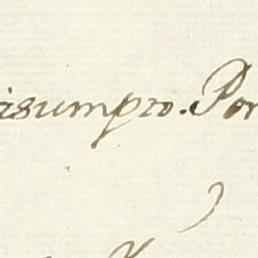 isumpro. Por